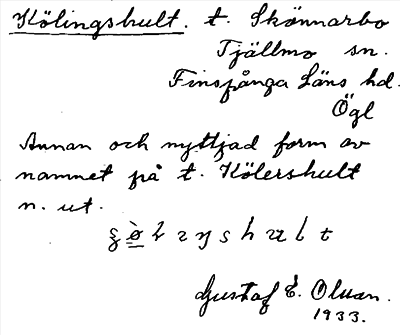 Kölingshult. t. Skönnarbo
Tjällmo sn.
Finspånga Läns hd.
Ögl
Annan och nyttjad form av
namnet på t. Kölershult
n. ut.
Gustaf E. Olsson.
1933.